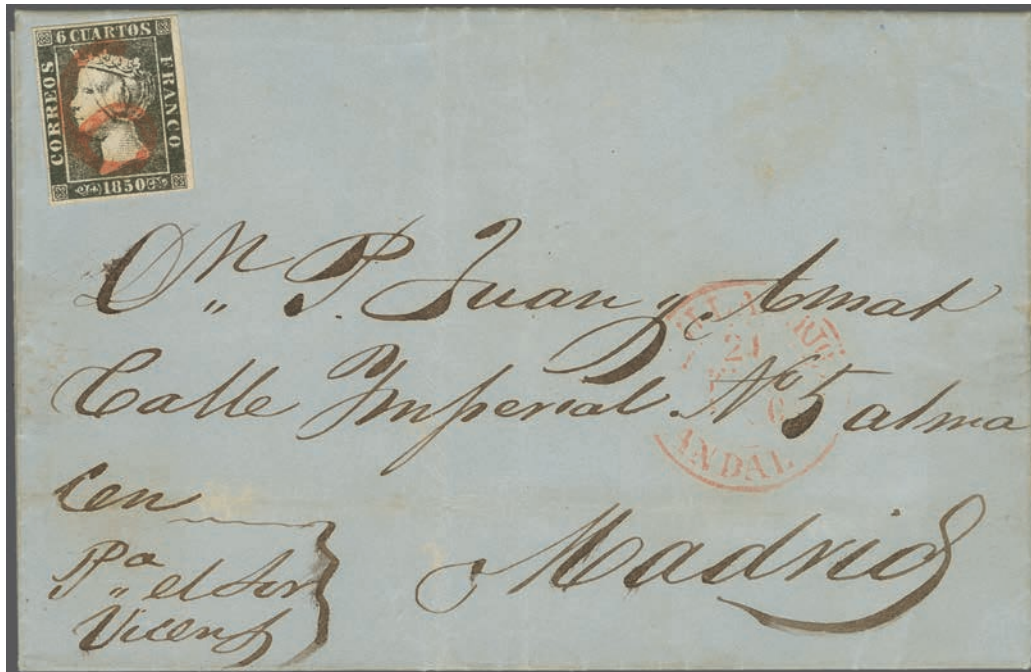 6 CUARTOS
CORREOS
FRANCO
1850
Dn P. Juan y Amat
Calle Imperial No 5 alma
cen
Madrid
Pa el Sor
Vicens
ANDAL